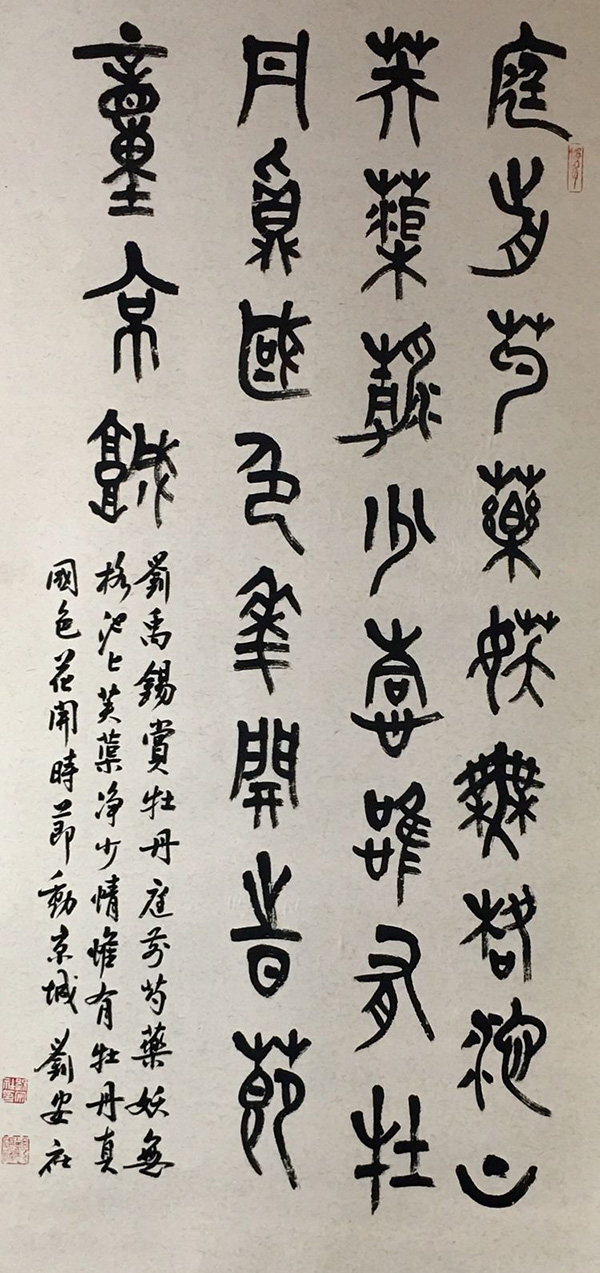 庭歬芍藥媄無格池上
芙蕖靜少情唯有牡
丹真國色華開時節
動京城
劉禹錫賞牡丹庭前芍藥妖無
格池上芙蕖净少情惟有牡丹真
國色花開時節動京城劉安社